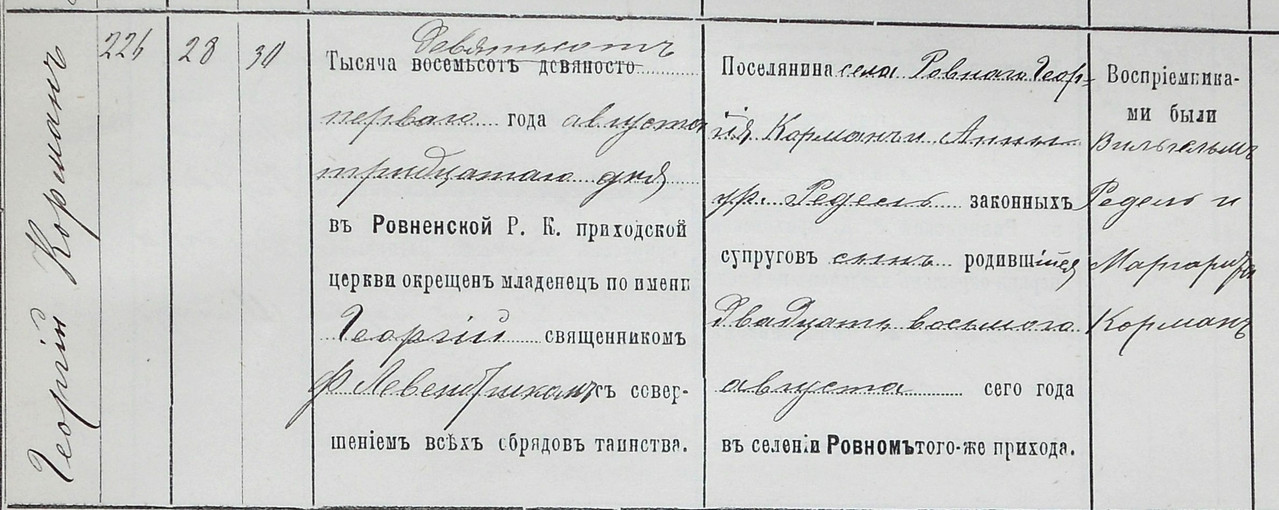 Георгій Корманъ
226
28
30
Девятьсотъ
Тысяча восемьсотъ девяносто
перваго года августа
тридцатаго дня
въ Ровненской Р. К. приходской
церкви окрещенъ младенецъ по имени
Георгій священникомъ
съ совер-
шеніемъ всѣхъ обрядовъ таинства.
Поселянина села Ровнаго Геор-
гія Корманъ и Анны
ур. Редель законныхъ
супруговъ сынъ родившійся
двадцать восьмого
августа сего года
въ селеніи Ровномъ того-же прихода.
Воспріемника-
ми были
Вильгельмъ
Редель и
Маргарита
Корманъ